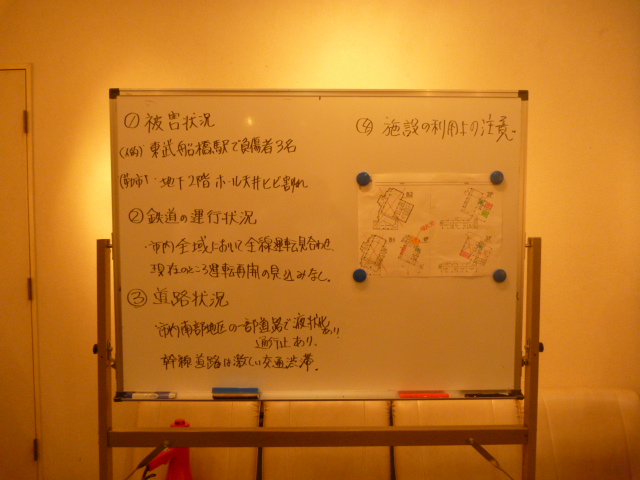 ① 被害状況
(人的) 東武船橋駅で負傷者3名
・地下2階 ホール天井ヒビ割れ
② 鉄道の運行状況
・市内全域において全線運転見合わせ、
現在のところ運転再開の見込みなし。
③ 道路状況
市内南部地区の一部道路で液状化あり!
通行止あり、
幹線道路は激しい交通渋滞。
④ 施設の利用上の注意